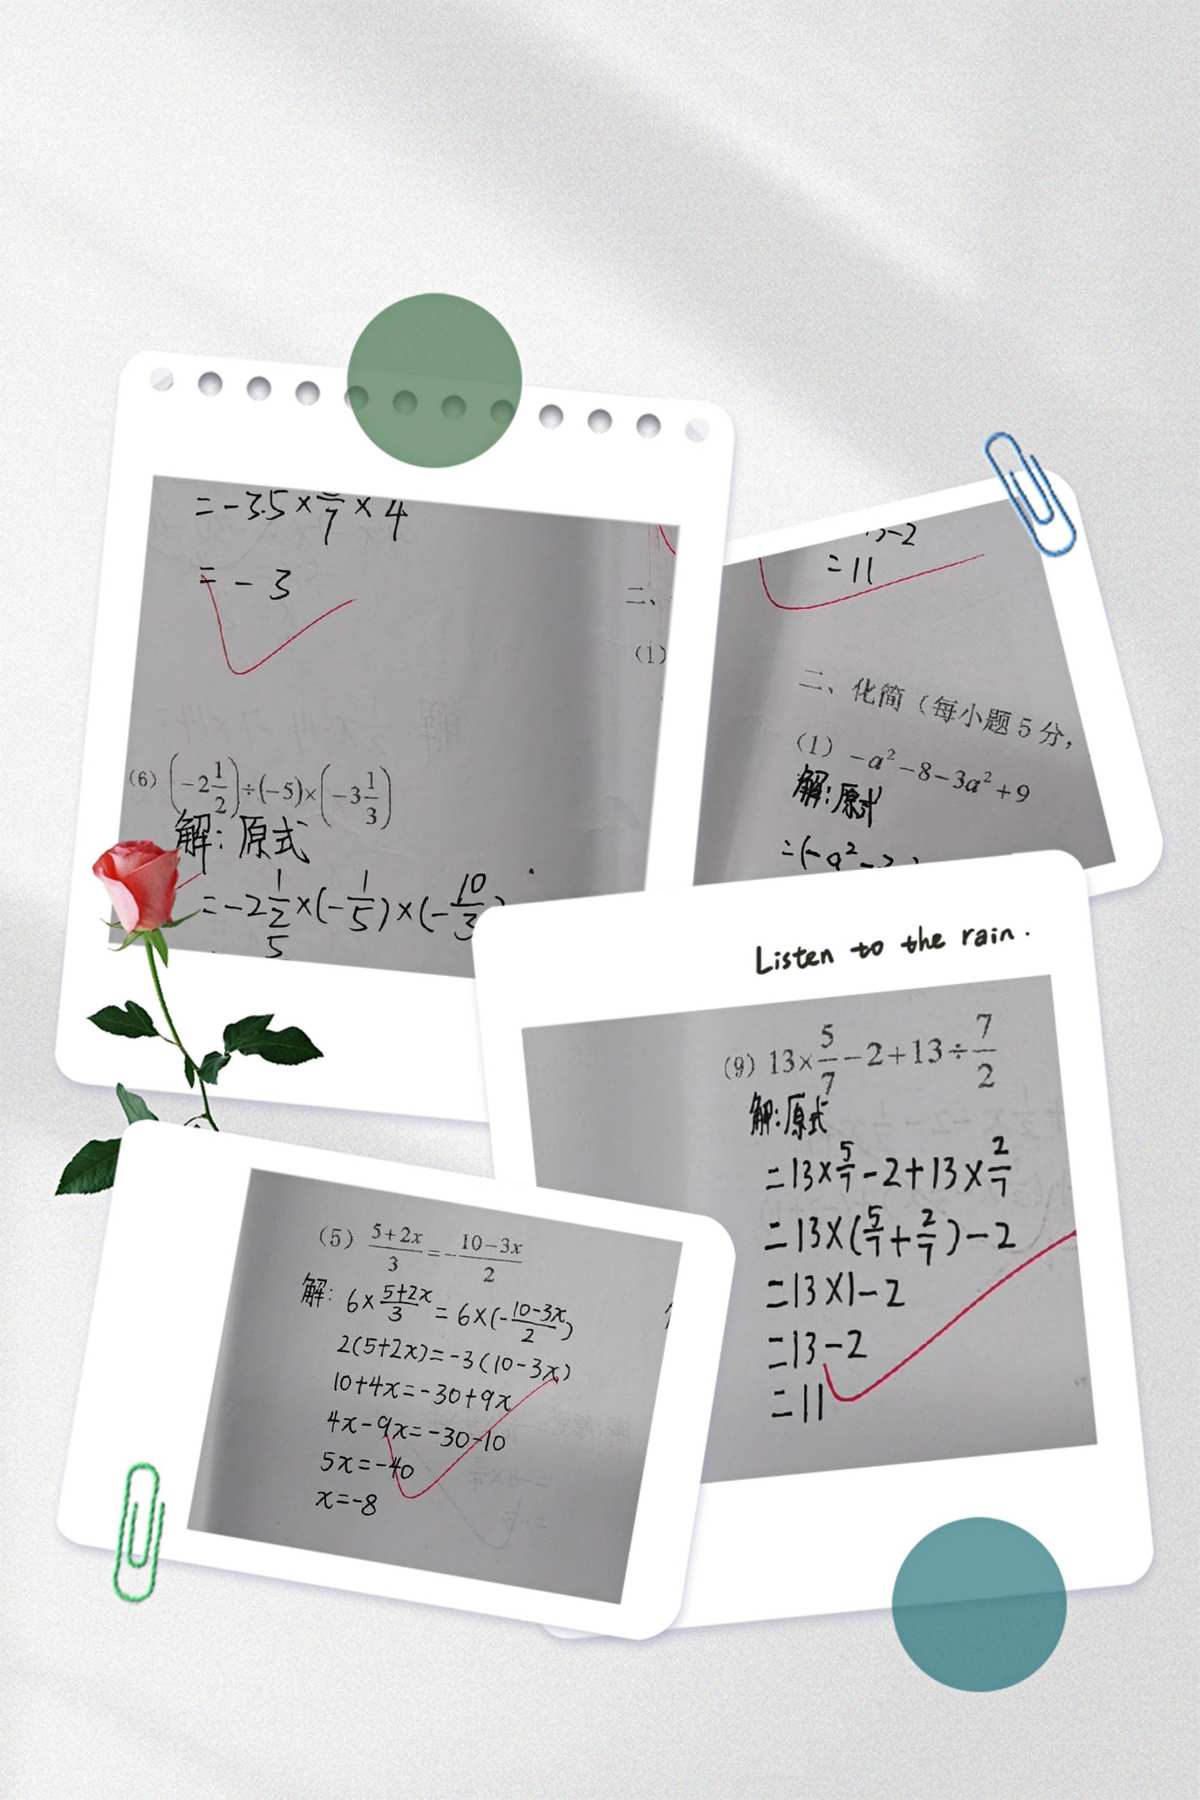 =-3.5×7×4
=-3
(6) (-2 1/2)÷(-5)×(-3 1/3)
解:原式
=-2 1/2×(-1/5)×(-10/3)
5
二、
(1)
3-2
=11
二、化简(每小题5分,
(1) -a²-8-3a²+9
解:原式
=(-a²-3
Listen to the rain.
(9) 13×5/7-2+13÷7/2
解:原式
=13×5/7-2+13×2/7
=13×(5/7+2/7)-2
=13×1-2
=13-2
=11
(5) (5+2x)/3=-(10-3x)/2
解: 6×(5+2x)/3=6×(-(10-3x)/2)
2(5+2x)=-3(10-3x)
10+4x=-30+9x
4x-9x=-30-10
5x=-40
x=-8